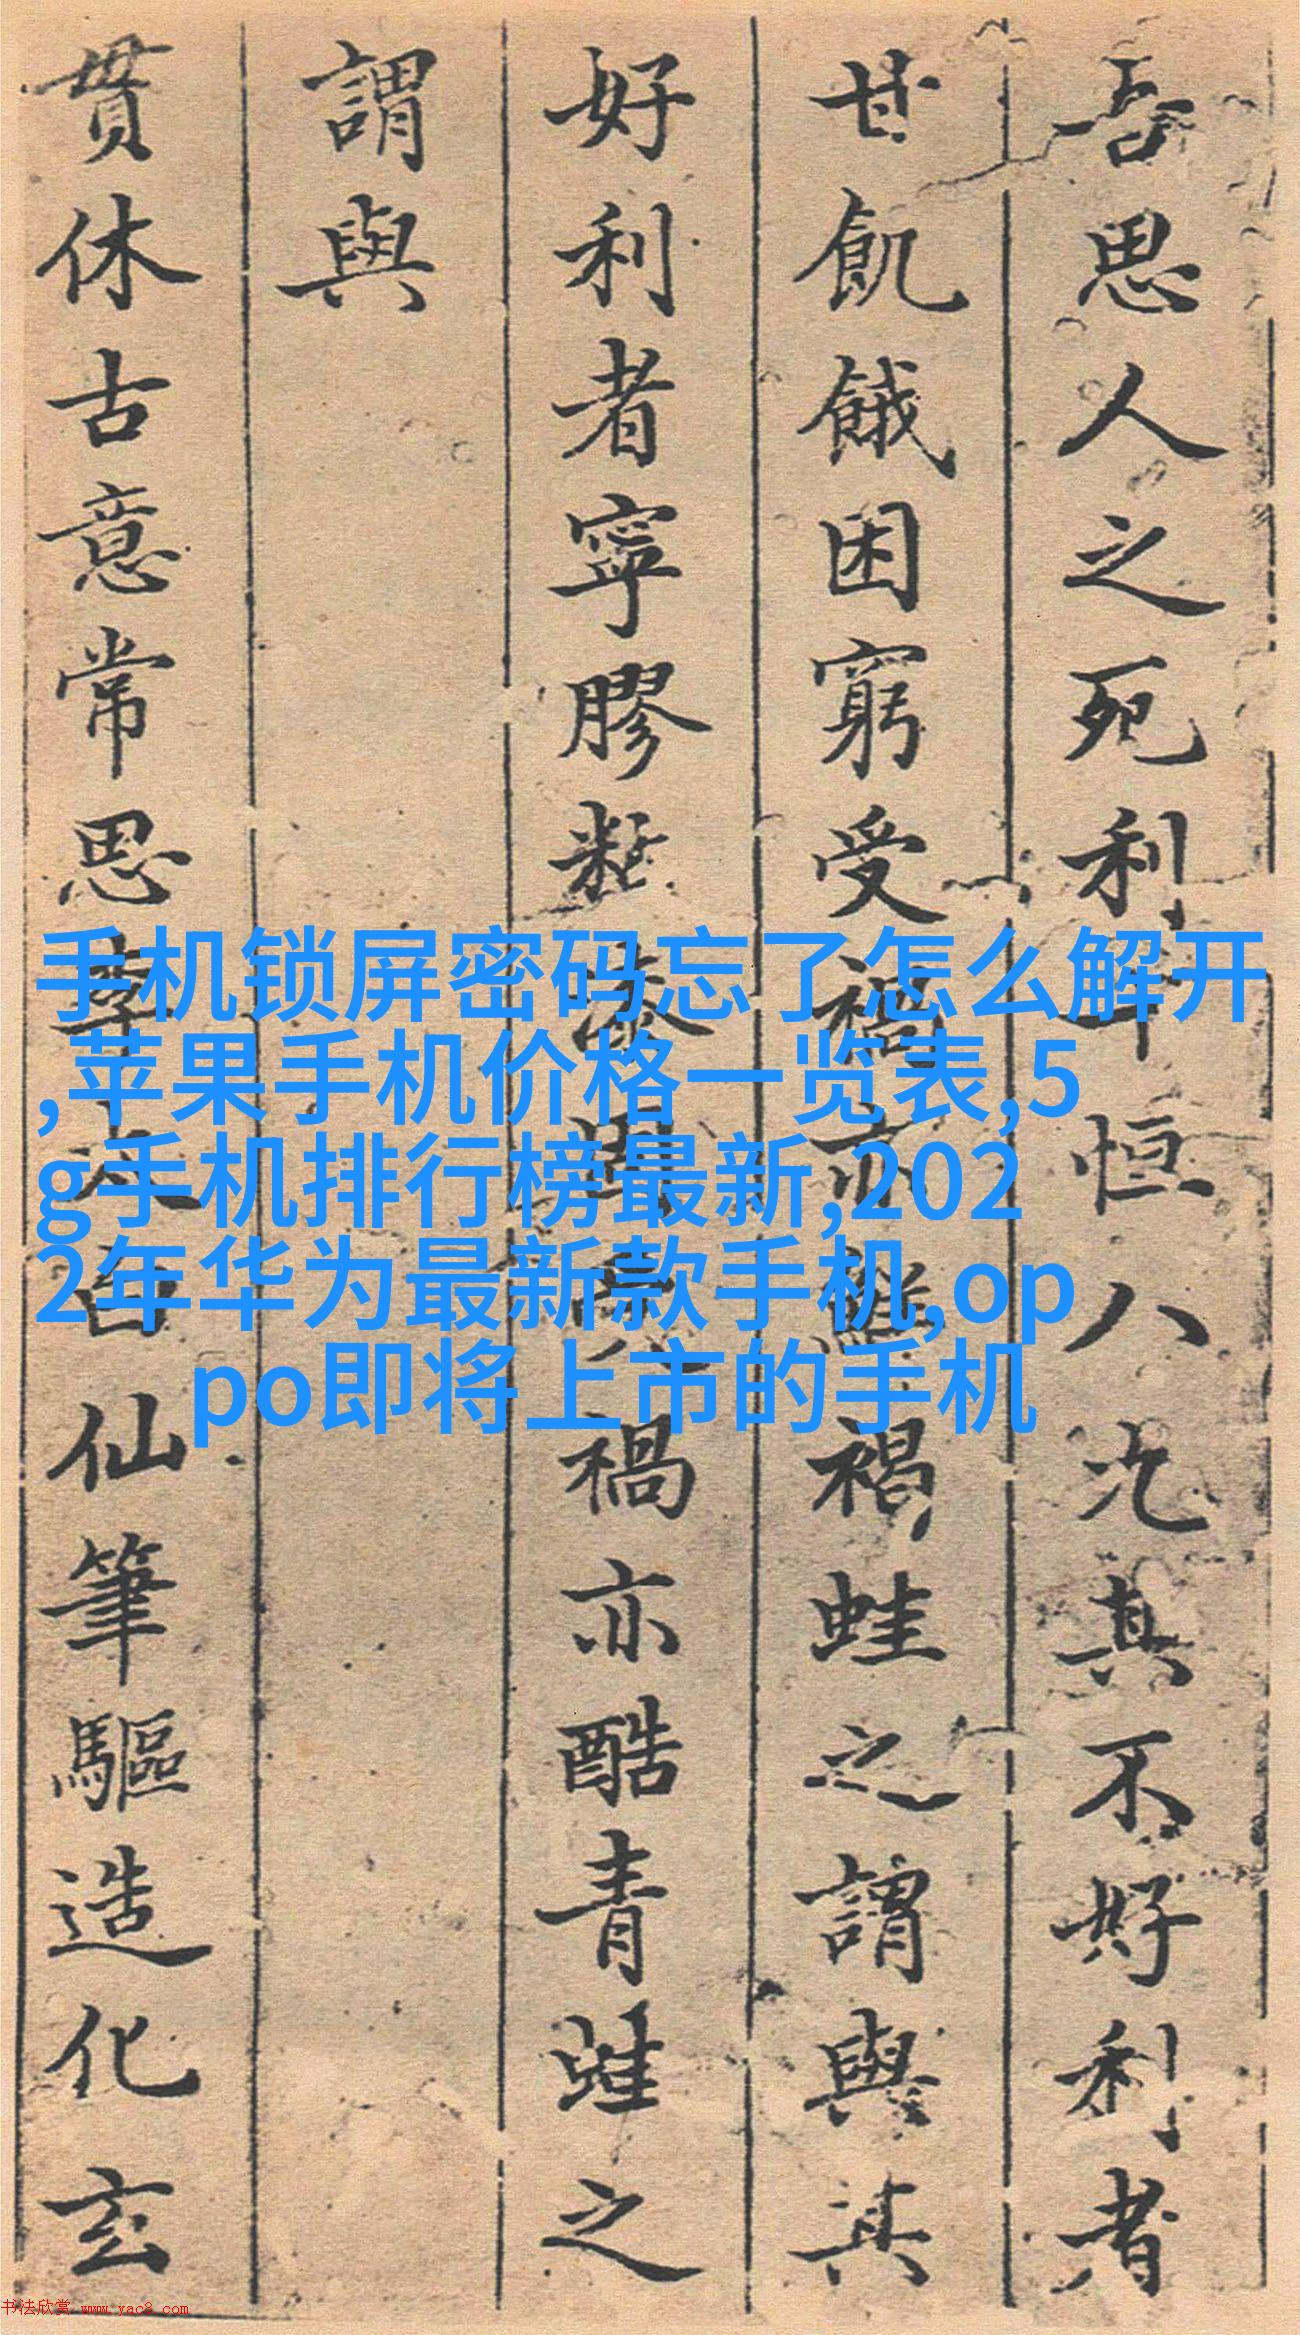 吾思人之死利十恒八況其不好利者
甘飢餓困窮受禍亦酷褐蛙之謂與其
好利者寧膠黏漆禍亦酷青蛙之
謂與
贯休古意常思李太白仙筆驅造化玄
手机锁屏密码忘了怎么解开
,苹果手机价格一览表,5
g手机排行榜最新,202
2年华为最新款手机,op
po即将上市的手机
书法欣赏 www.yac8.com